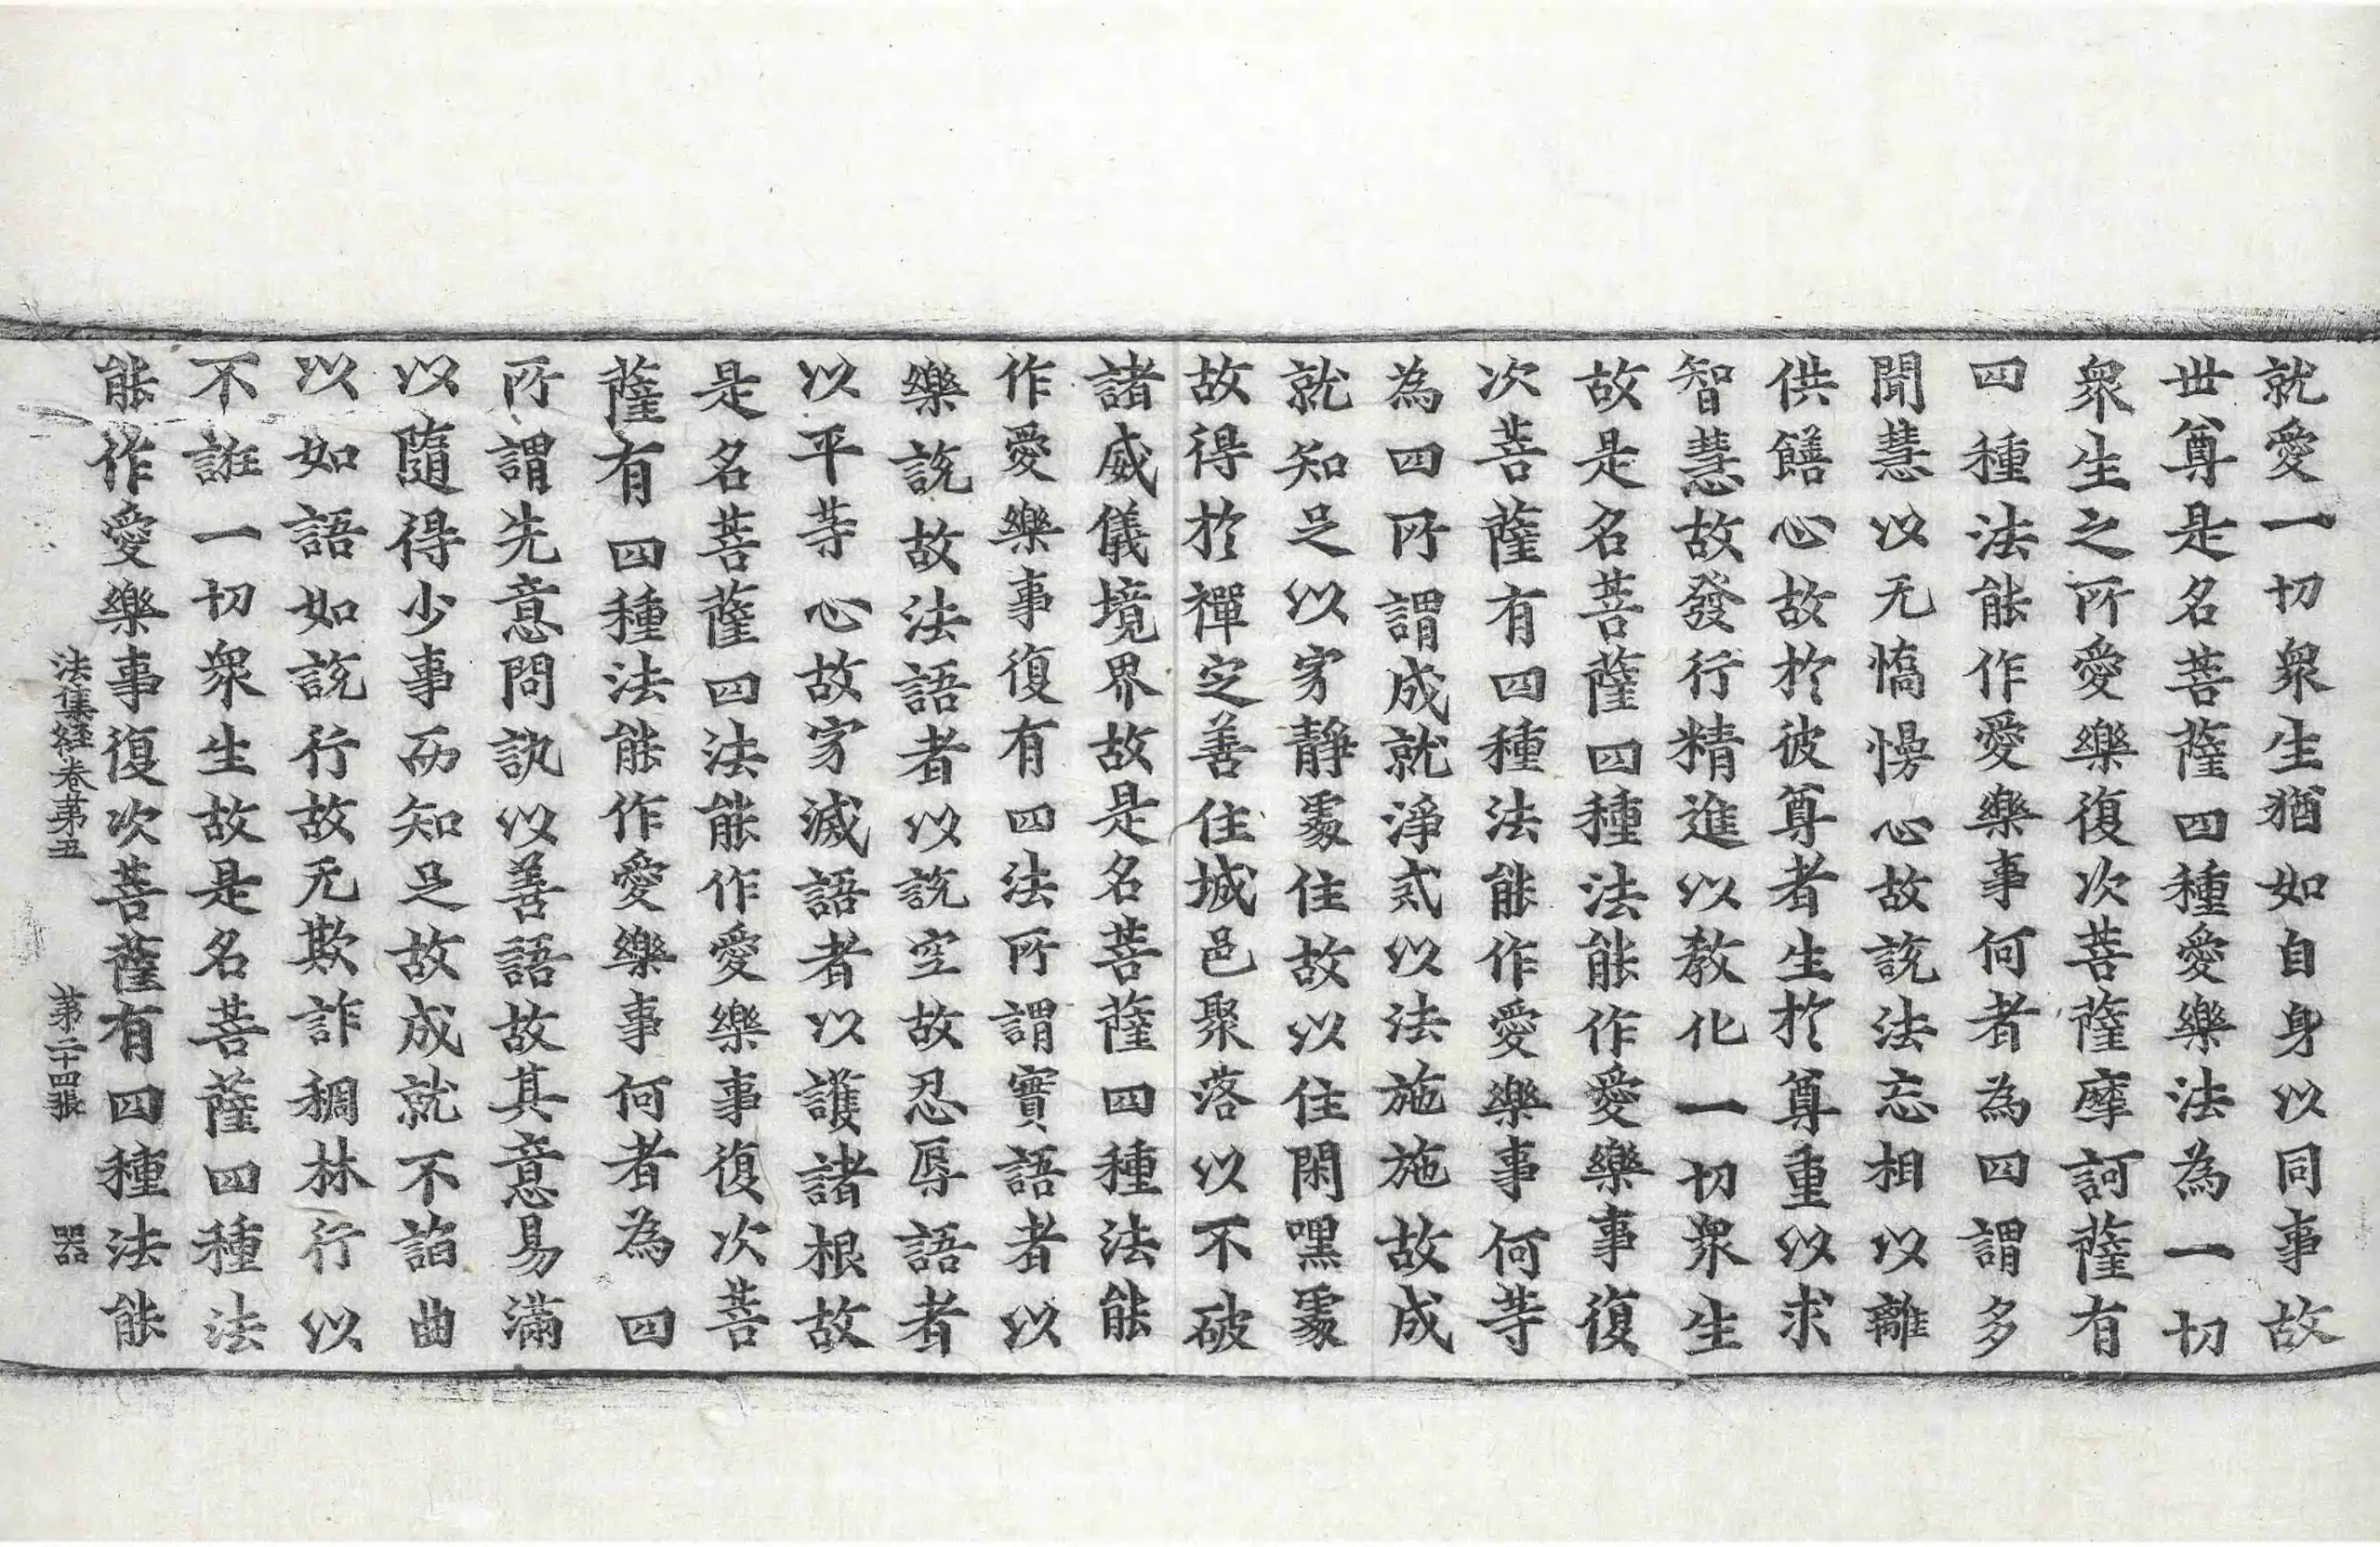 就愛一切衆生猶如自身以同事故
世尊是名菩薩四種愛樂法為一切
衆生之所愛樂復次菩薩摩訶薩有
四種法能作愛樂事何者為四謂多
聞慧以无憍慢心故說法忘相以離
供饍心故於彼尊者生於尊重以求
智慧故發行精進以教化一切衆生
故是名菩薩四種法能作愛樂事復
次菩薩有四種法能作愛樂事何等
為四所謂成就淨戒以法施施故成
就知足以寂靜處住故以住閑嘿處
故得於禪定善住城邑聚落以不破
諸威儀境界故是名菩薩四種法能
作愛樂事復有四法所謂實語者以
樂說故法語者以說空故忍辱語者
以平等心故寂滅語者以護諸根故
是名菩薩四法能作愛樂事復次菩
薩有四種法能作愛樂事何者為四
所謂先意問訊以善語故其意易滿
以隨得少事而知足故成就不諂曲
以如語如說行故无欺詐稠林行以
不誑一切衆生故是名菩薩四種法
能作愛樂事復次菩薩有四種法能
法集經卷第五 第二十四張 器